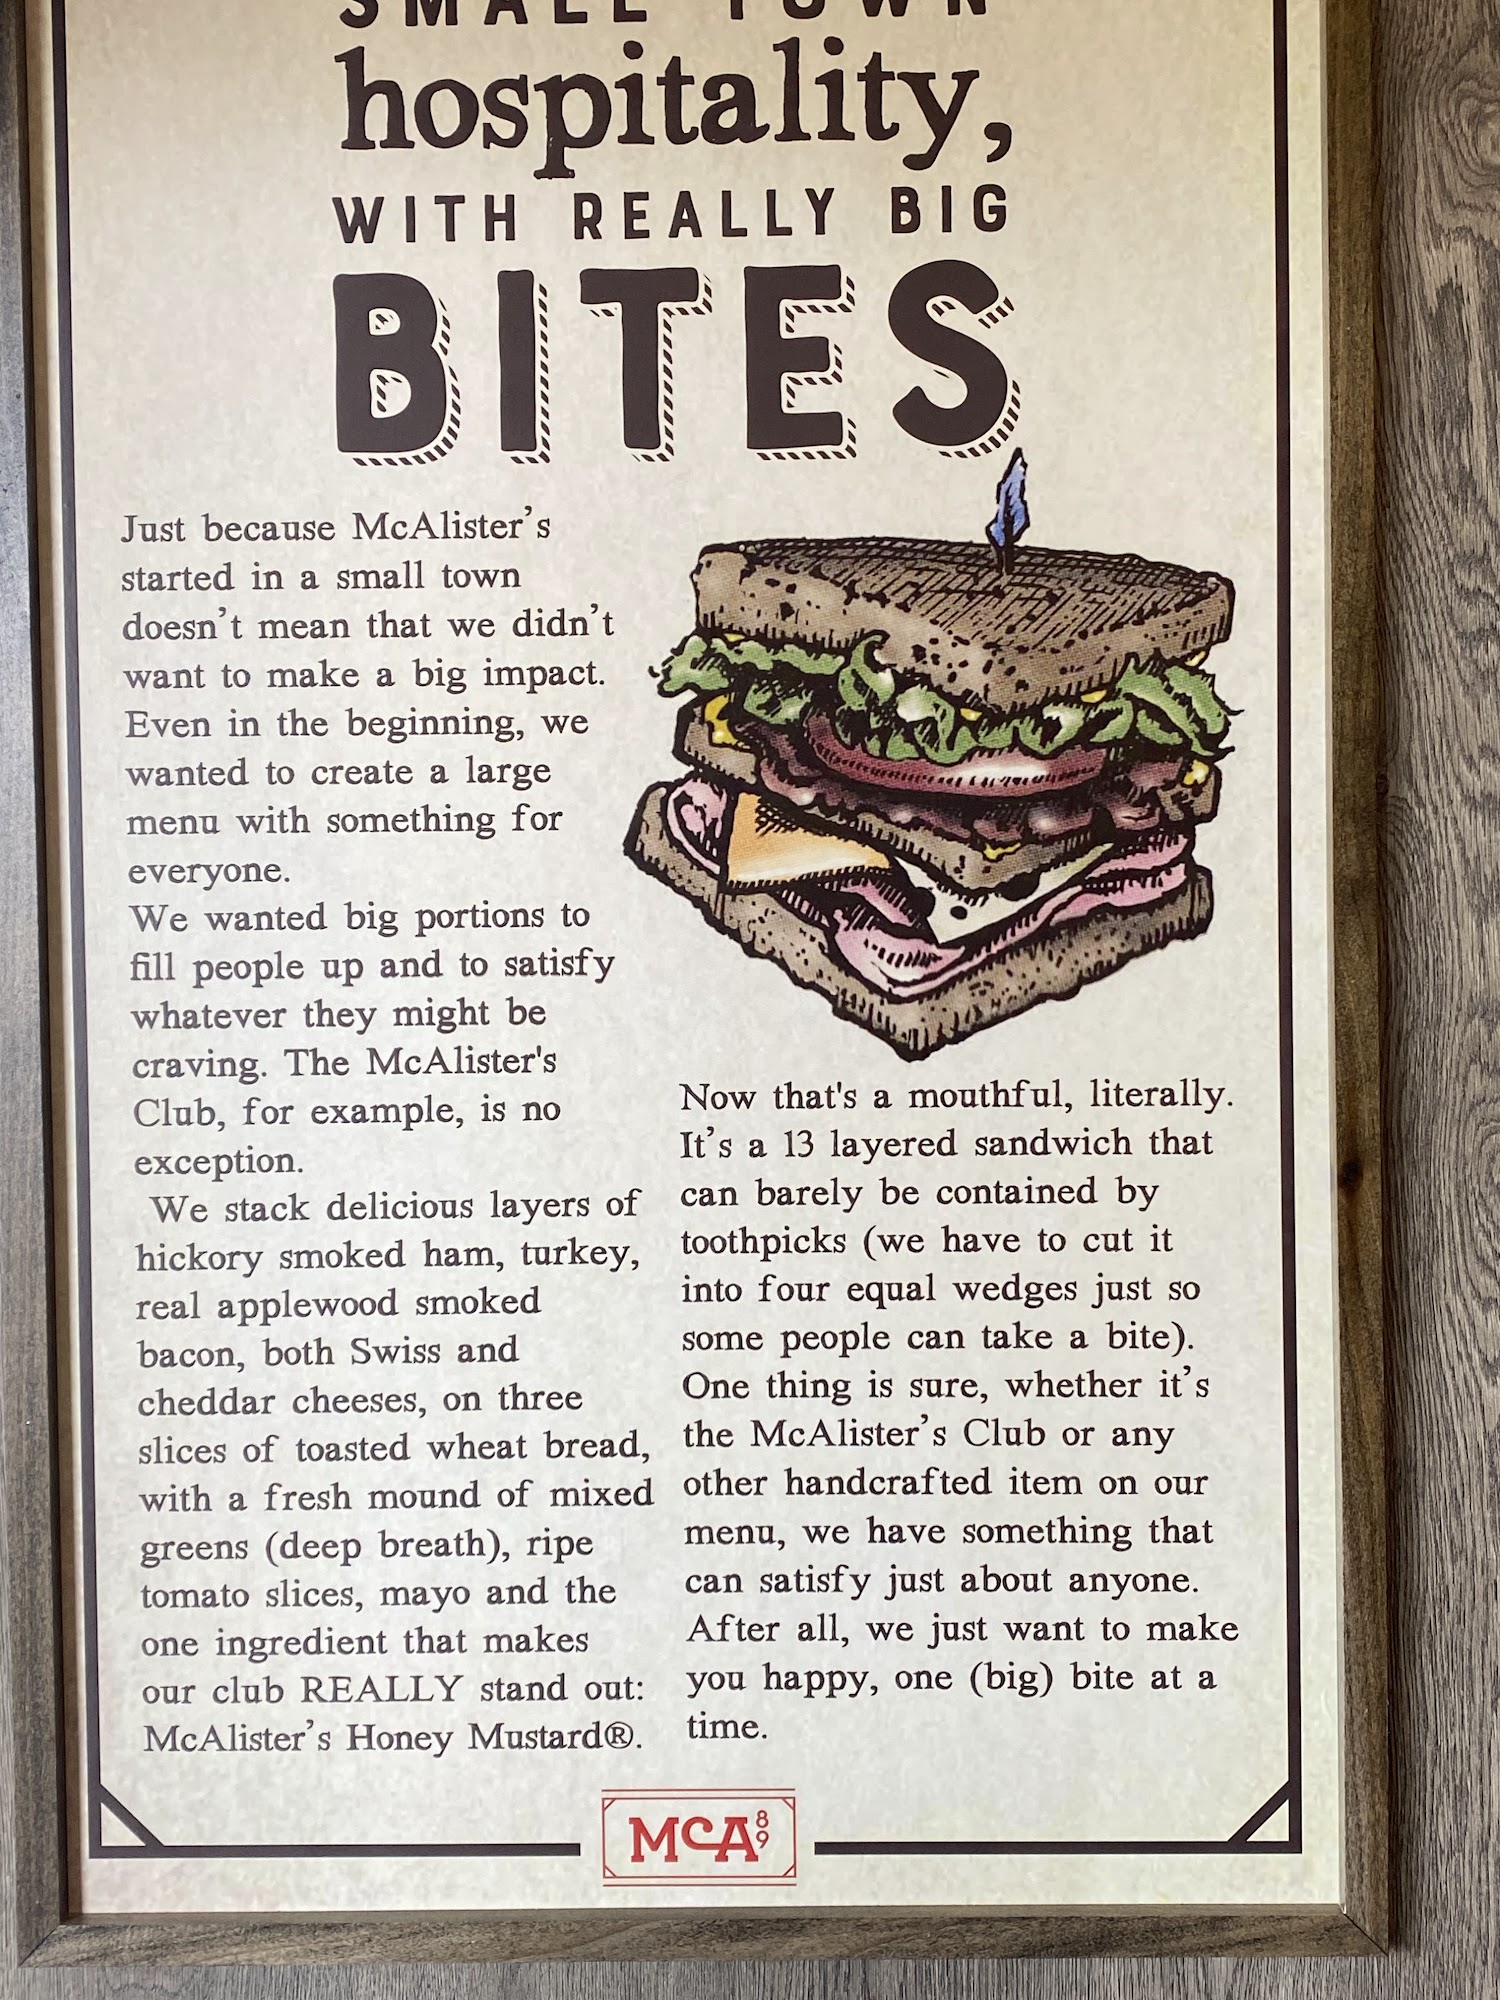 SMALL TOWN
hospitality,
WITH REALLY BIG
BITES
Just because McAlister’s
started in a small town
doesn’t mean that we didn’t
want to make a big impact.
Even in the beginning, we
wanted to create a large
menu with something for
everyone.
We wanted big portions to
fill people up and to satisfy
whatever they might be
craving. The McAlister's
Club, for example, is no
exception.
We stack delicious layers of
hickory smoked ham, turkey,
real applewood smoked
bacon, both Swiss and
cheddar cheeses, on three
slices of toasted wheat bread,
with a fresh mound of mixed
greens (deep breath), ripe
tomato slices, mayo and the
one ingredient that makes
our club REALLY stand out:
McAlister’s Honey Mustard®.
Now that's a mouthful, literally.
It’s a 13 layered sandwich that
can barely be contained by
toothpicks (we have to cut it
into four equal wedges just so
some people can take a bite).
One thing is sure, whether it’s
the McAlister’s Club or any
other handcrafted item on our
menu, we have something that
can satisfy just about anyone.
After all, we just want to make
you happy, one (big) bite at a
time.
MCA 89